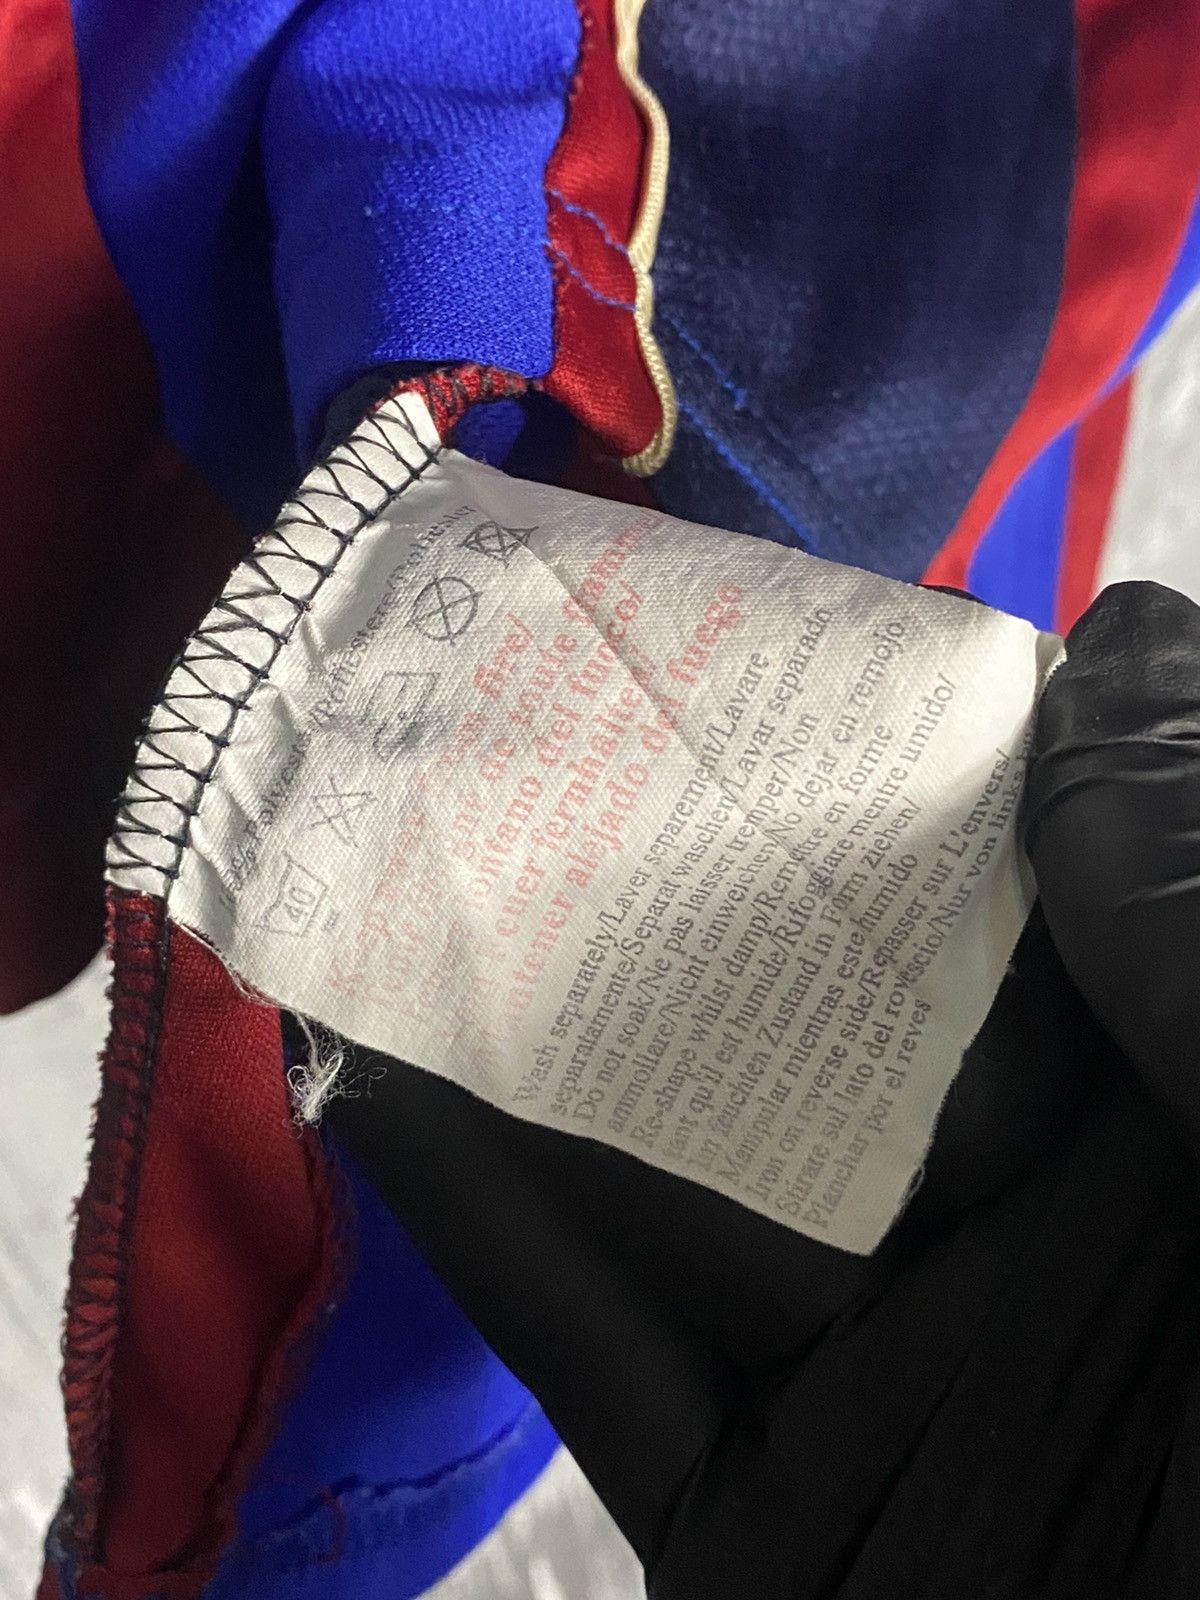 100% Polyester/Poliestere/Poliester
40
Keep away from fire/
Tenir de toute flamme/
lontano del fuoco/
feuer fernhalten/
Mantener alejado del fuego
Wash separately/Laver separement/Lavare
separatamente/Separat waschen/Lavar separado
Do not soak/Ne pas laisser tremper/Non
ammollare/Nicht einweichen/No dejar en remojo
Re-shape whilst damp/Remettre en forme
tant qu'il est humide/Rifoggiare mentre umido/
Im feuchten Zustand in Form ziehen/
Manipular mientras este humido
Iron on reverse side/Repasser sur L'envers/
Stirare sul lato del rovescio/Nur von links
Planchar por el reves